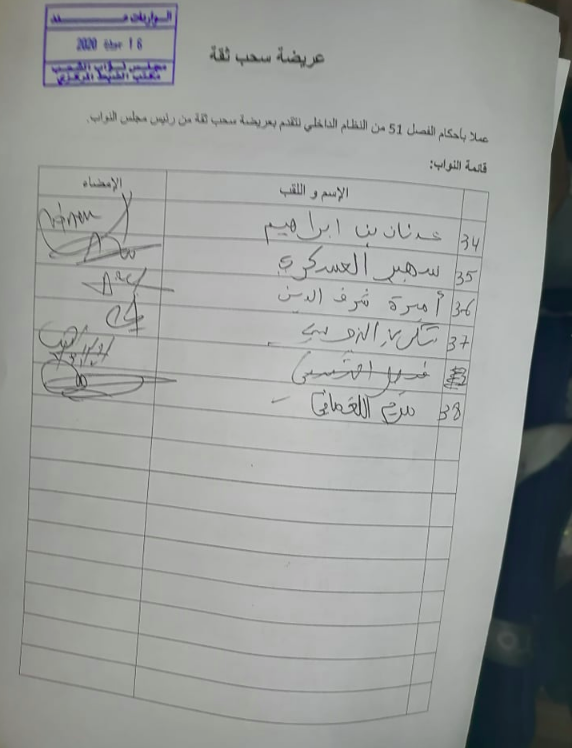 الـواردات عـــــدد
16 جويلية 2020
مجلس نواب الشعب
مكتب الضبط المركزي
عريضة سحب ثقة
عملا بأحكام الفصل 51 من النظام الداخلي نتقدم بعريضة سحب ثقة من رئيس مجلس النواب.
قائمة النواب:
الإسم و اللقب الإمضاء
34 عدنان بن ابراهيم
35 سهير العسكري
36 أميرة شرف الدين
37
38 مريم اللغماني